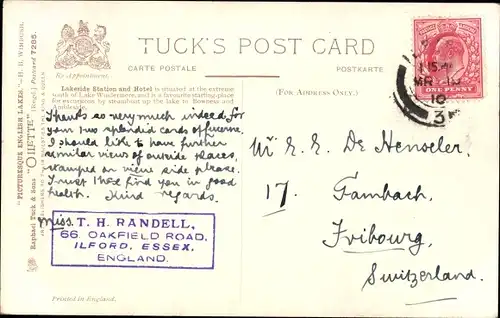 TUCK'S POST CARD
By Appointment.
CARTE POSTALE
POSTKARTE
(FOR ADDRESS ONLY.)
Lakeside Station and Hotel is situated at the extreme
south of Lake Windermere, and is a favourite starting place
for excursions by steamboat up the lake to Bowness and
Ambleside.
"PICTURESQUE ENGLISH LAKES"
Raphael Tuck & Sons' "OILETTE" [Regd.] Postcard 7285.
Thanks so very much indeed for
your two splendid cards of Lucerne.
I should like to have further
similar views of outside places,
stamped on view side please.
Trust this find you in good
health. Kind regards.
Miss. T. H. RANDELL,
66, OAKFIELD ROAD,
ILFORD, ESSEX,
ENGLAND.
Printed in England.
ONE PENNY
MR
10
Mr E. E. De Henseler.
17. Gambach.
Fribourg.
Switzerland.